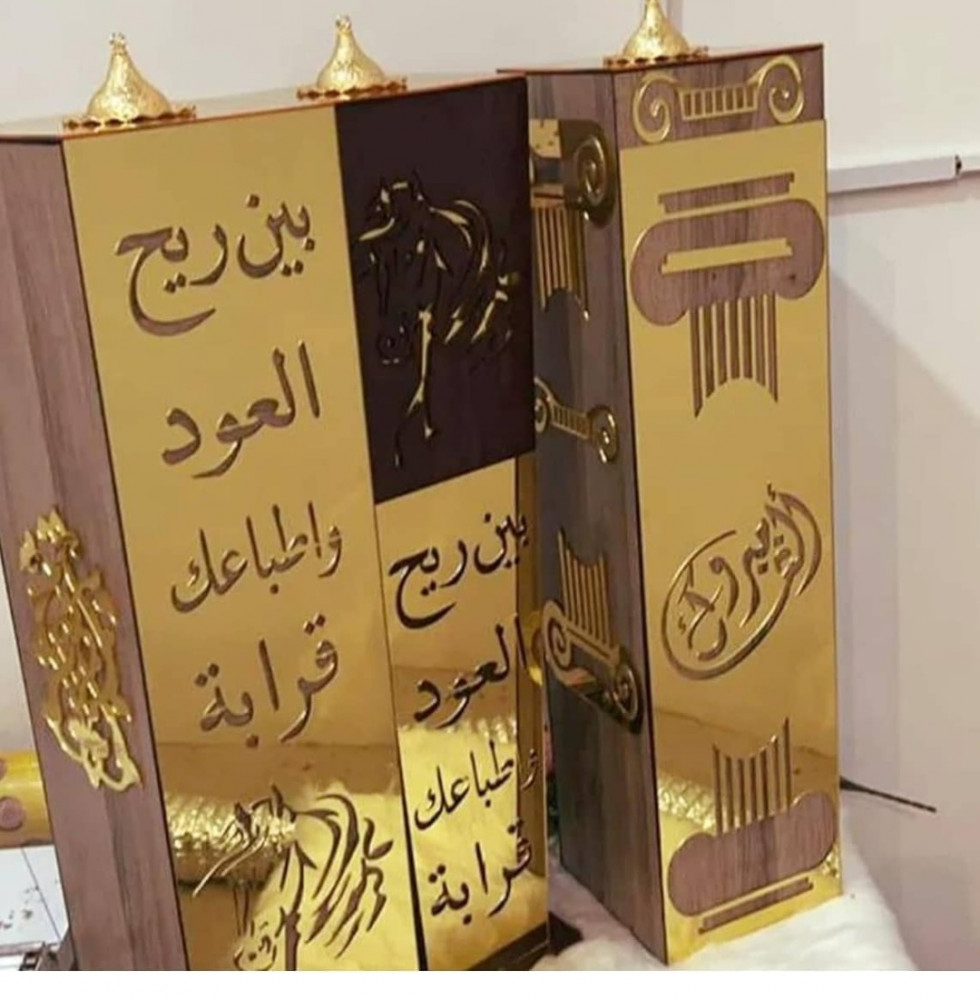 بين ريح
العود
واطباعك
قرابة
بين ريح
العود
واطباعك
قرابة